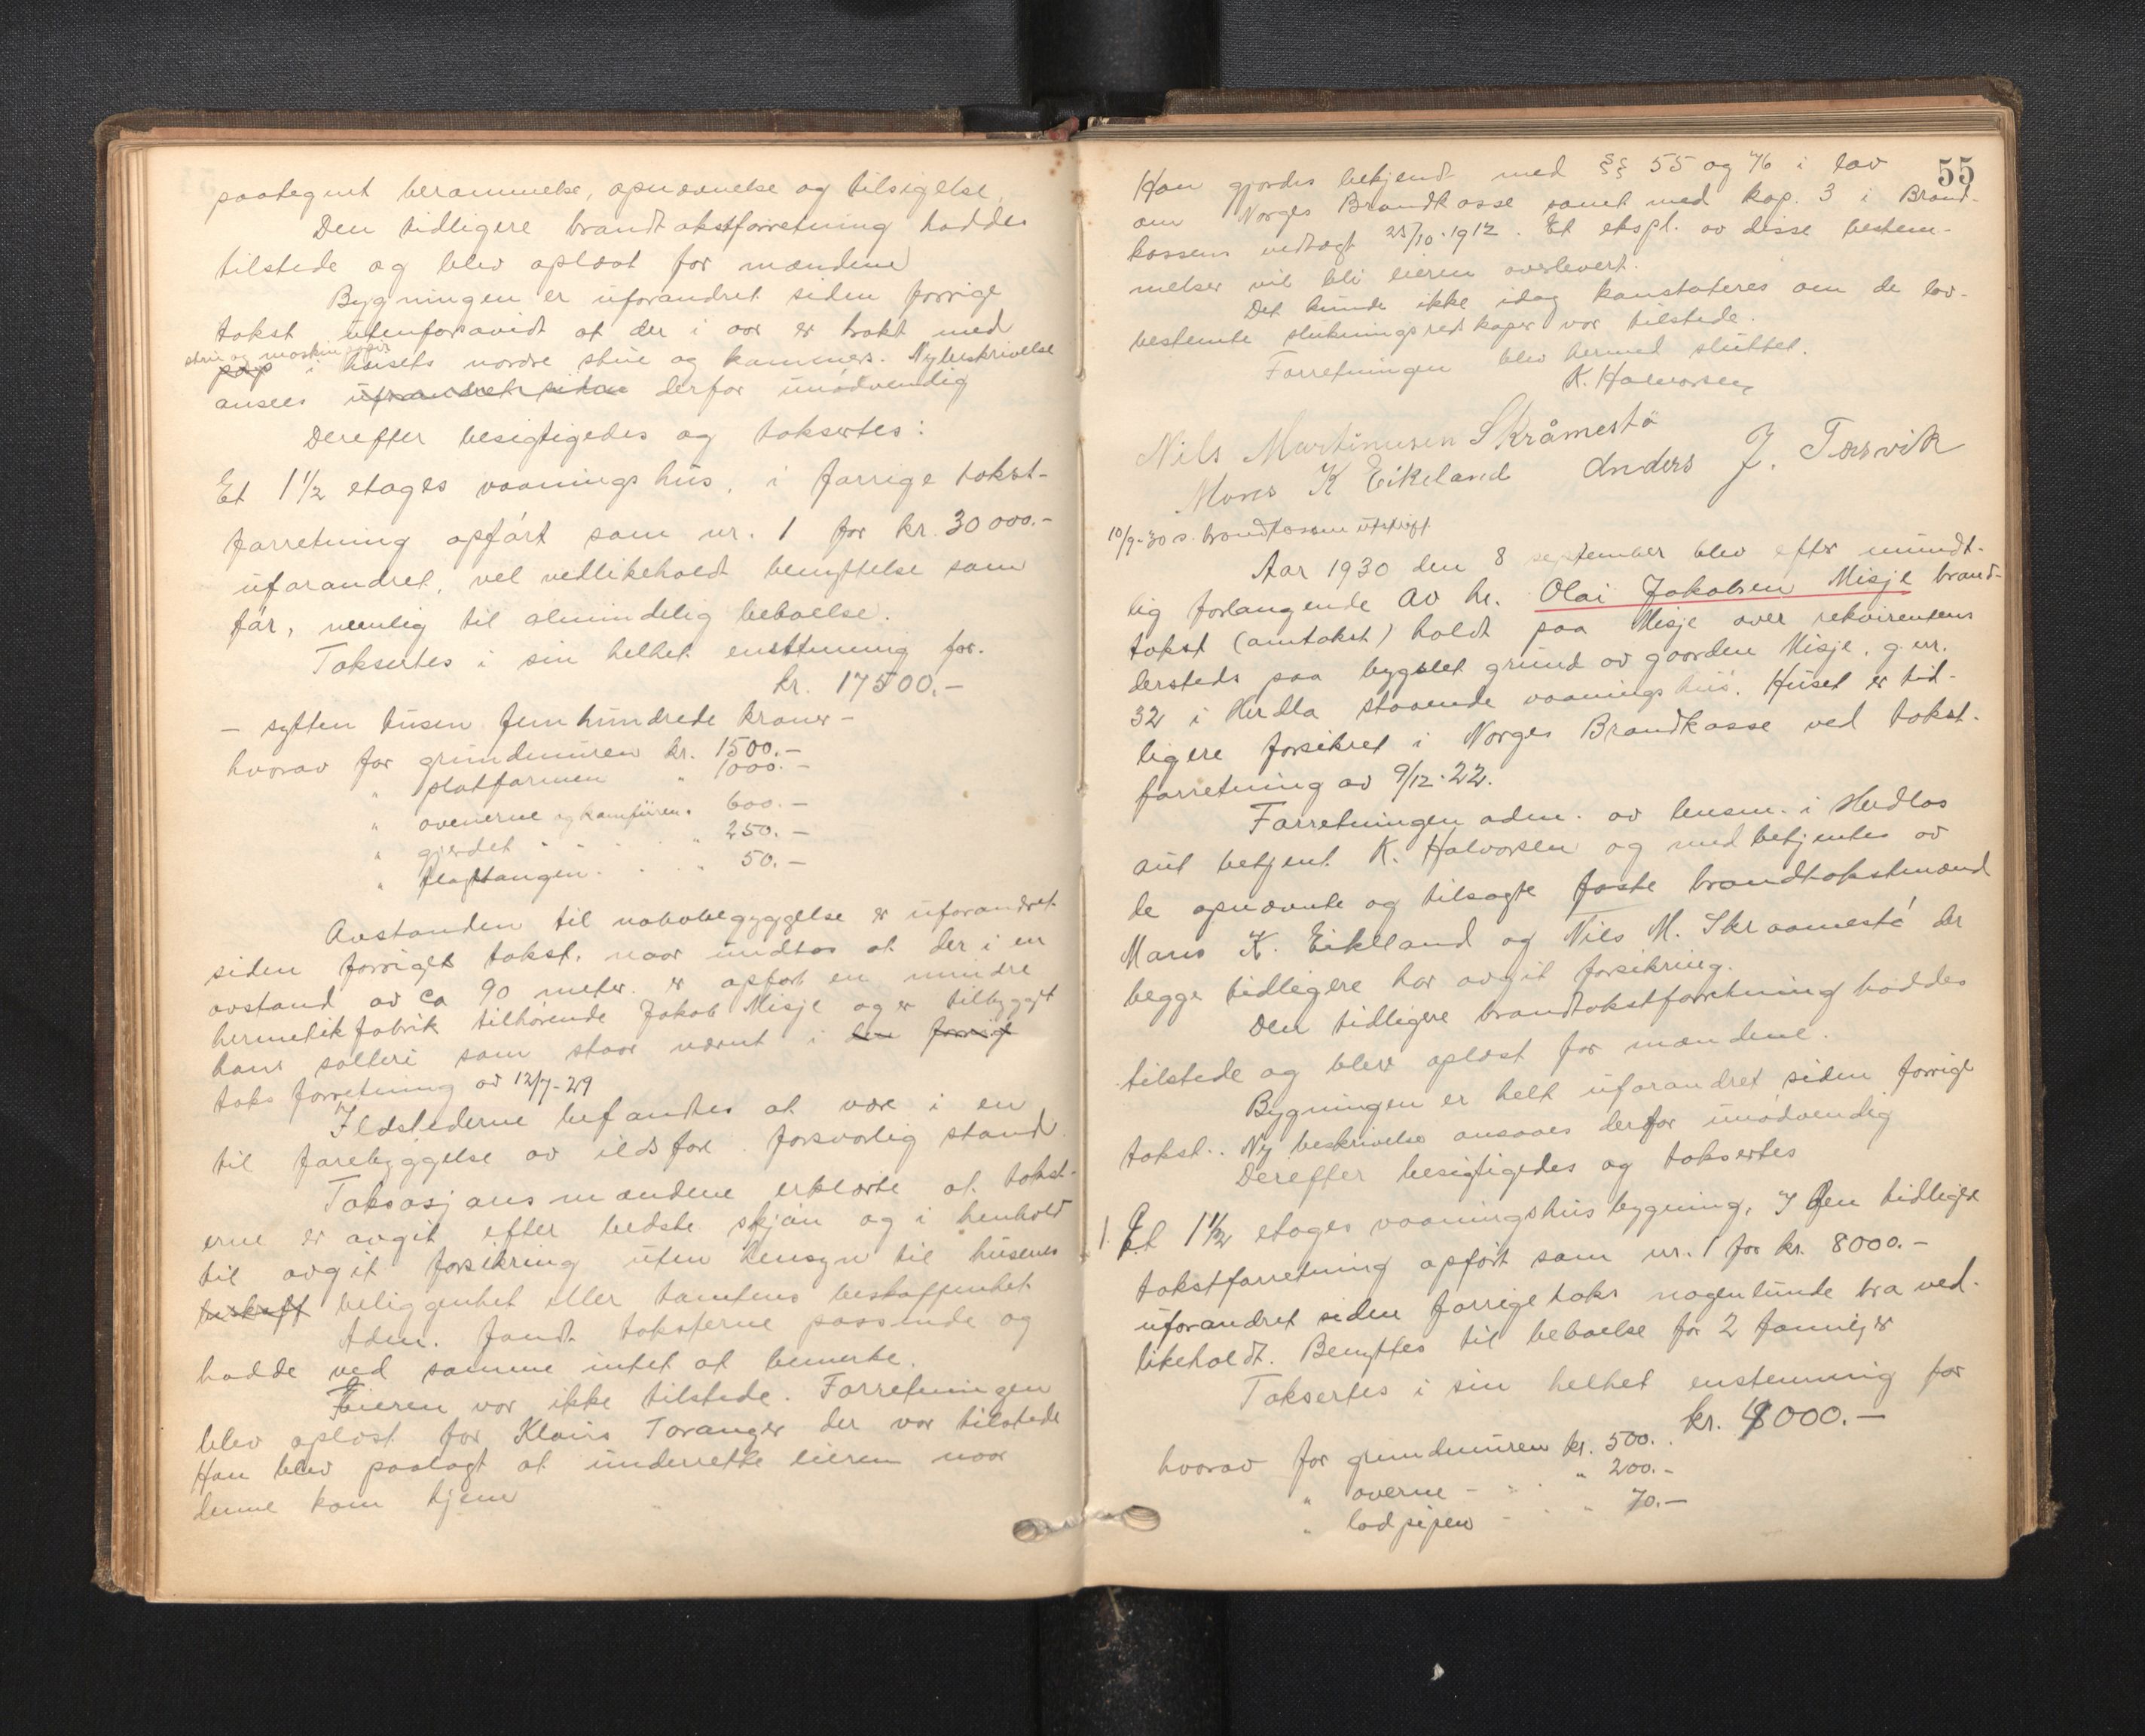 paategnt berammelse, opnævnelse og tilsigelse.
Den tidligere brandtakstforretning haddes
tilstede og blev oplæst for mændene
Bygningen er uforandret siden forrige
takst utenforsavidt at der i aar er trokt med
strie og maskinpapir
pap i husets nordre stue og kammers. Ny beskrivelse
ansees uforandret siden derfor unødvendig
Derefter besigtigedes og taksertes:
Et 1 1/2 etages vaaningshus, i forrige takst-
forretning opført som nr. 1 for kr. 30 000.-
uforandret, vel vedlikeholdt benyttelse som
før, nemlig til almindelig beboelse.
Taksertes i sin helhet enstemmig for.
kr. 17500.-
- sytten tusen femhundrede kroner -
hvorav for grundmuren kr. 1500.-
" platformen " 1000.-
" ovenerne og komfuren. 600.-
" gjerdet " 250.-
" flagstangen. " 50.-
Avstanden til nabobebyggelse er uforandret
siden forriget takst, naar undtas at der i en
avstand av ca 90 meter. er opført en mindre
hermetikfabrik tilhørende Jakob Misje og er tilbygget
hans salteri som staar nævnt i den forrige
taksforretning av 12/7-29
Ildstederne befandtes at være i en
til forebyggelse av ildsfare forsvarlig stand.
Taksasjonsmændene erklærte at takst-
erne er avgit efter bedste skjøn og i henhold
til avgit forsikring uten hensyn til husenes
beskaff beliggenhet eller tomtens beskaffenhet
Adm. fandt taksterne passende og
hadde ved samme intet at bemerke.
Eieren var ikke tilstede. Forretningen
blev oplæst for Klaus Toranger der var tilstede
Han blev paalagt at underrette eieren naar
denne kom hjem
55
Han gjordes bekjendt med §§ 55 og 76 i lov
om Norges Brandkasse samt med kap. 3 i Brand-
kassens vedtægt 25/10-1912. Et ekspl. av disse bestem-
melser vil bli eieren overlevert.
Det kunde ikke idag konstateres om de lov-
bestemte slukningsredskaper var tilstede.
Forretningen blev hermed sluttet.
K. Halvorsen
Nils Martinusen Skråmestø
Mons K Eikeland Anders J. Tærvik
10/9-30 s. brandkassen utskrift
Aar 1930 den 8 september blev efter mundt-
lig forlangende av hr. Olai Jakobsen Misje brand-
takst (omtakst) holdt paa Misje over rekvirentens
dersteds paa bygslet grund av gaarden Misje, g. nr.
32 i Herdla staaende vaaningshus. Huset er tid-
ligere forsikret i Norges Brandkasse ved takst-
forretning av 9/12-22.
Forretningen adm. av lensm. i Herdlas
aut betjent K. Halvorsen og med betjentes av
de opnævnte og tilsagte faste brandtakstmænd
Mons K. Eikeland og Nils M. Skraamestø der
begge tidligere har avgit forsikring.
Den tidligere brandtakstforretning haddes
tilstede og blev oplæst for mændene.
Bygningen er helt uforandret siden forrige
takst. Ny beskrivelse ansaaes derfor unødvendig
Derefter besigtigedes og taksertes
1. Et 1 1/2 etages vaaningshusbygning, I den tidligere
takstforretning opført som nr. 1 for kr. 8000.-
uforandret siden forrige taks nogenlunde bra ved-
likeholdt. Benyttes til beboelse for 2 familjer
Taksertes i sin helhet enstemmig for
kr. 4000.-
hvorav for grundmuren kr. 500.
" overne - " 200.-
" lodpipen - " 70.-